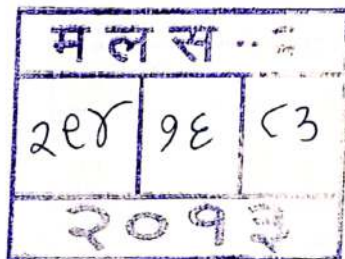 म ल स
२९४ १६ ८३
२०१३